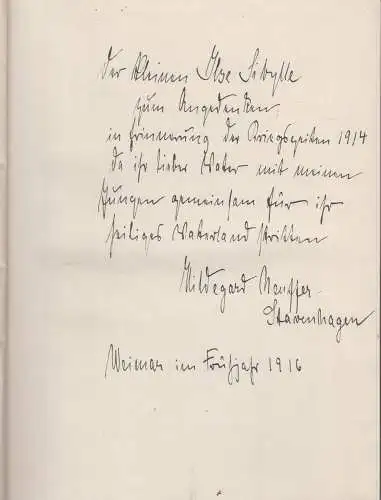 Der kleinen Ilse Sibylle
zum Angedenken
in Erinnerung der Kriegszeiten 1914
da ihr lieber Vater mit meinen
Jungen gemeinsam für ihr
heiliges Vaterland stritten
Hildegard Neuffer
Stavenhagen
Weimar im Frühjahr 1916